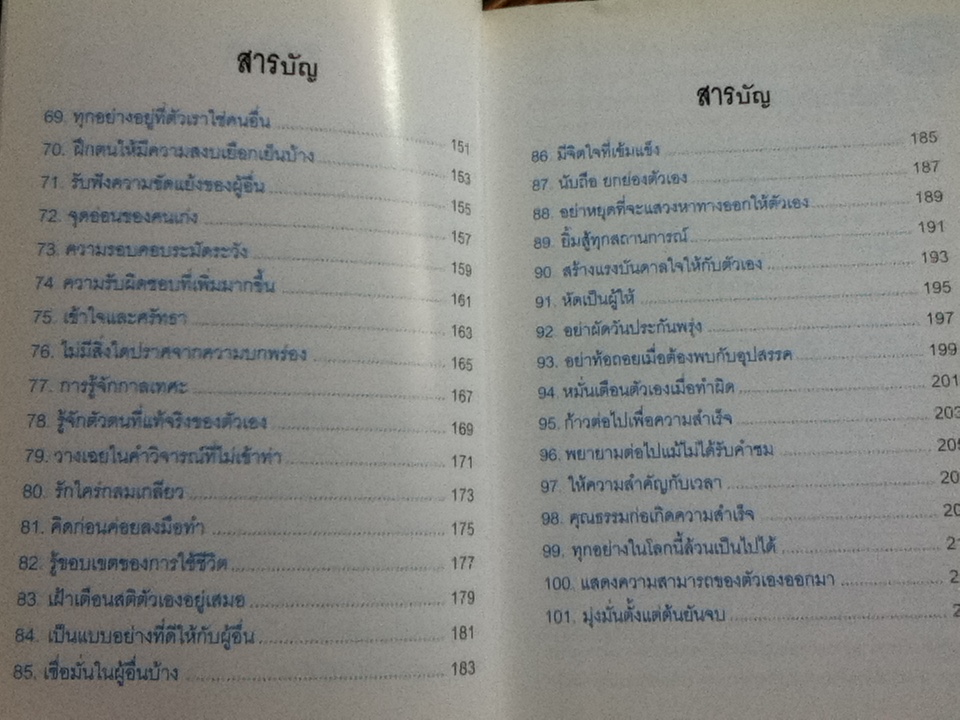 สารบัญ
69. ทุกอย่างอยู่ที่ตัวเราใช่คนอื่น 151
70. ฝึกตนให้มีความสงบเยือกเย็นบ้าง 153
71. รับฟังความขัดแย้งของผู้อื่น 155
72. จุดอ่อนของคนเก่ง 157
73. ความรอบคอบระมัดระวัง 159
74 ความรับผิดชอบที่เพิ่มมากขึ้น 161
75. เข้าใจและศรัทธา 163
76. ไม่มีสิ่งใดปราศจากความบกพร่อง 165
77. การรู้จักกาลเทศะ 167
78. รู้จักตัวตนที่แท้จริงของตัวเอง 169
79. วางเฉยในคำวิจารณ์ที่ไม่เข้าท่า 171
80. รักใคร่กลมเกลียว 173
81. คิดก่อนค่อยลงมือทำ 175
82. รู้ขอบเขตของการใช้ชีวิต 177
83. เฝ้าเตือนสติตัวเองอยู่เสมอ 179
84. เป็นแบบอย่างที่ดีให้กับผู้อื่น 181
85. เชื่อมั่นในผู้อื่นบ้าง 183
สารบัญ
86. มีจิตใจที่เข้มแข็ง 185
87. นับถือ ยกย่องตัวเอง 187
88. อย่าหยุดที่จะแสวงหาทางออกให้ตัวเอง 189
89. ยิ้มสู้ทุกสถานการณ์ 191
90 สร้างแรงบันดาลใจให้กับตัวเอง 193
91. หัดเป็นผู้ให้ 195
92. อย่าผัดวันประกันพรุ่ง 197
93. อย่าท้อถอยเมื่อต้องพบกับอุปสรรค 199
94. หมั่นเตือนตัวเองเมื่อทำผิด 201
95. ก้าวต่อไปเพื่อความสำเร็จ 203
96. พยายามต่อไปแม้ไม่ได้รับคำชม
97. ให้ความสำคัญกับเวลา
98. คุณธรรมก่อเกิดความสำเร็จ
99. ทุกอย่างในโลกนี้ล้วนเป็นไปได้
100. แสดงความสามารถของตัวเองออกมา
101. มุ่งมั่นตั้งแต่ต้นยันจบ